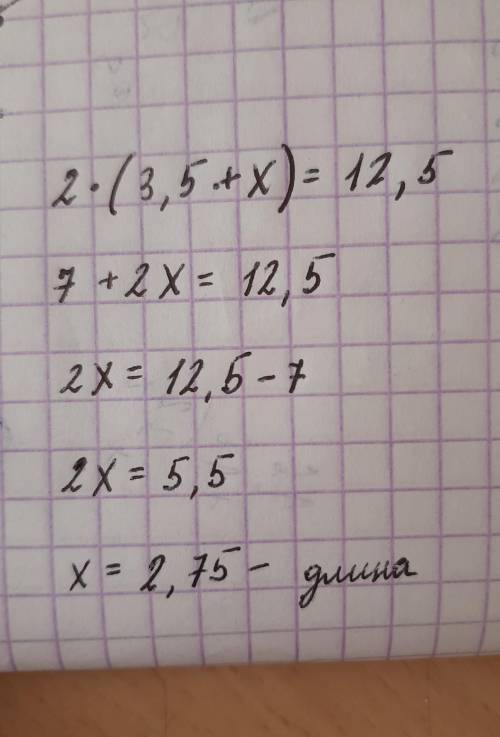 2·(3,5+x)=12,5
7+2x=12,5
2x=12,5-7
2x=5,5
x=2,75- длина